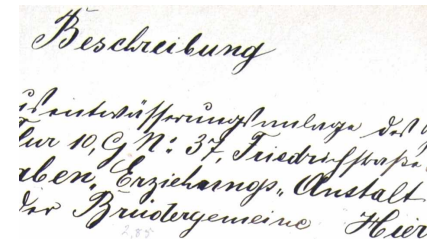 Beschreibung
usentwässerungsanlage des G
Flur 10, G No: 37, Friedrichstraße
aben, Erziehungs„ Anstalt
der Brüdergemeine Hier
2,85